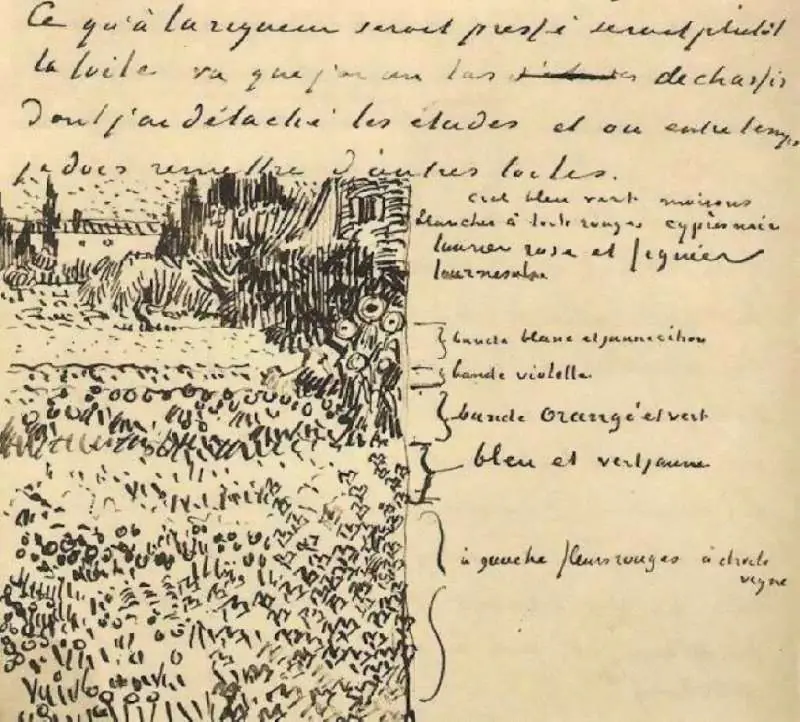 Ce qu'à la rigueur serait pressé serait plutôt
la toile vu que j'ai un tas de chassis
dont j'ai détaché les études et où entretemps
je dois remettre d'autres toiles.
ciel bleu vert maisons
blanches à toits rouges cyprès noir
laurier rose et figuier
tournesols
bande blanc et jaune citron
bande violette
bande orangé et vert
bleu et vert jaune
à gauche fleurs rouges à droite
vigne